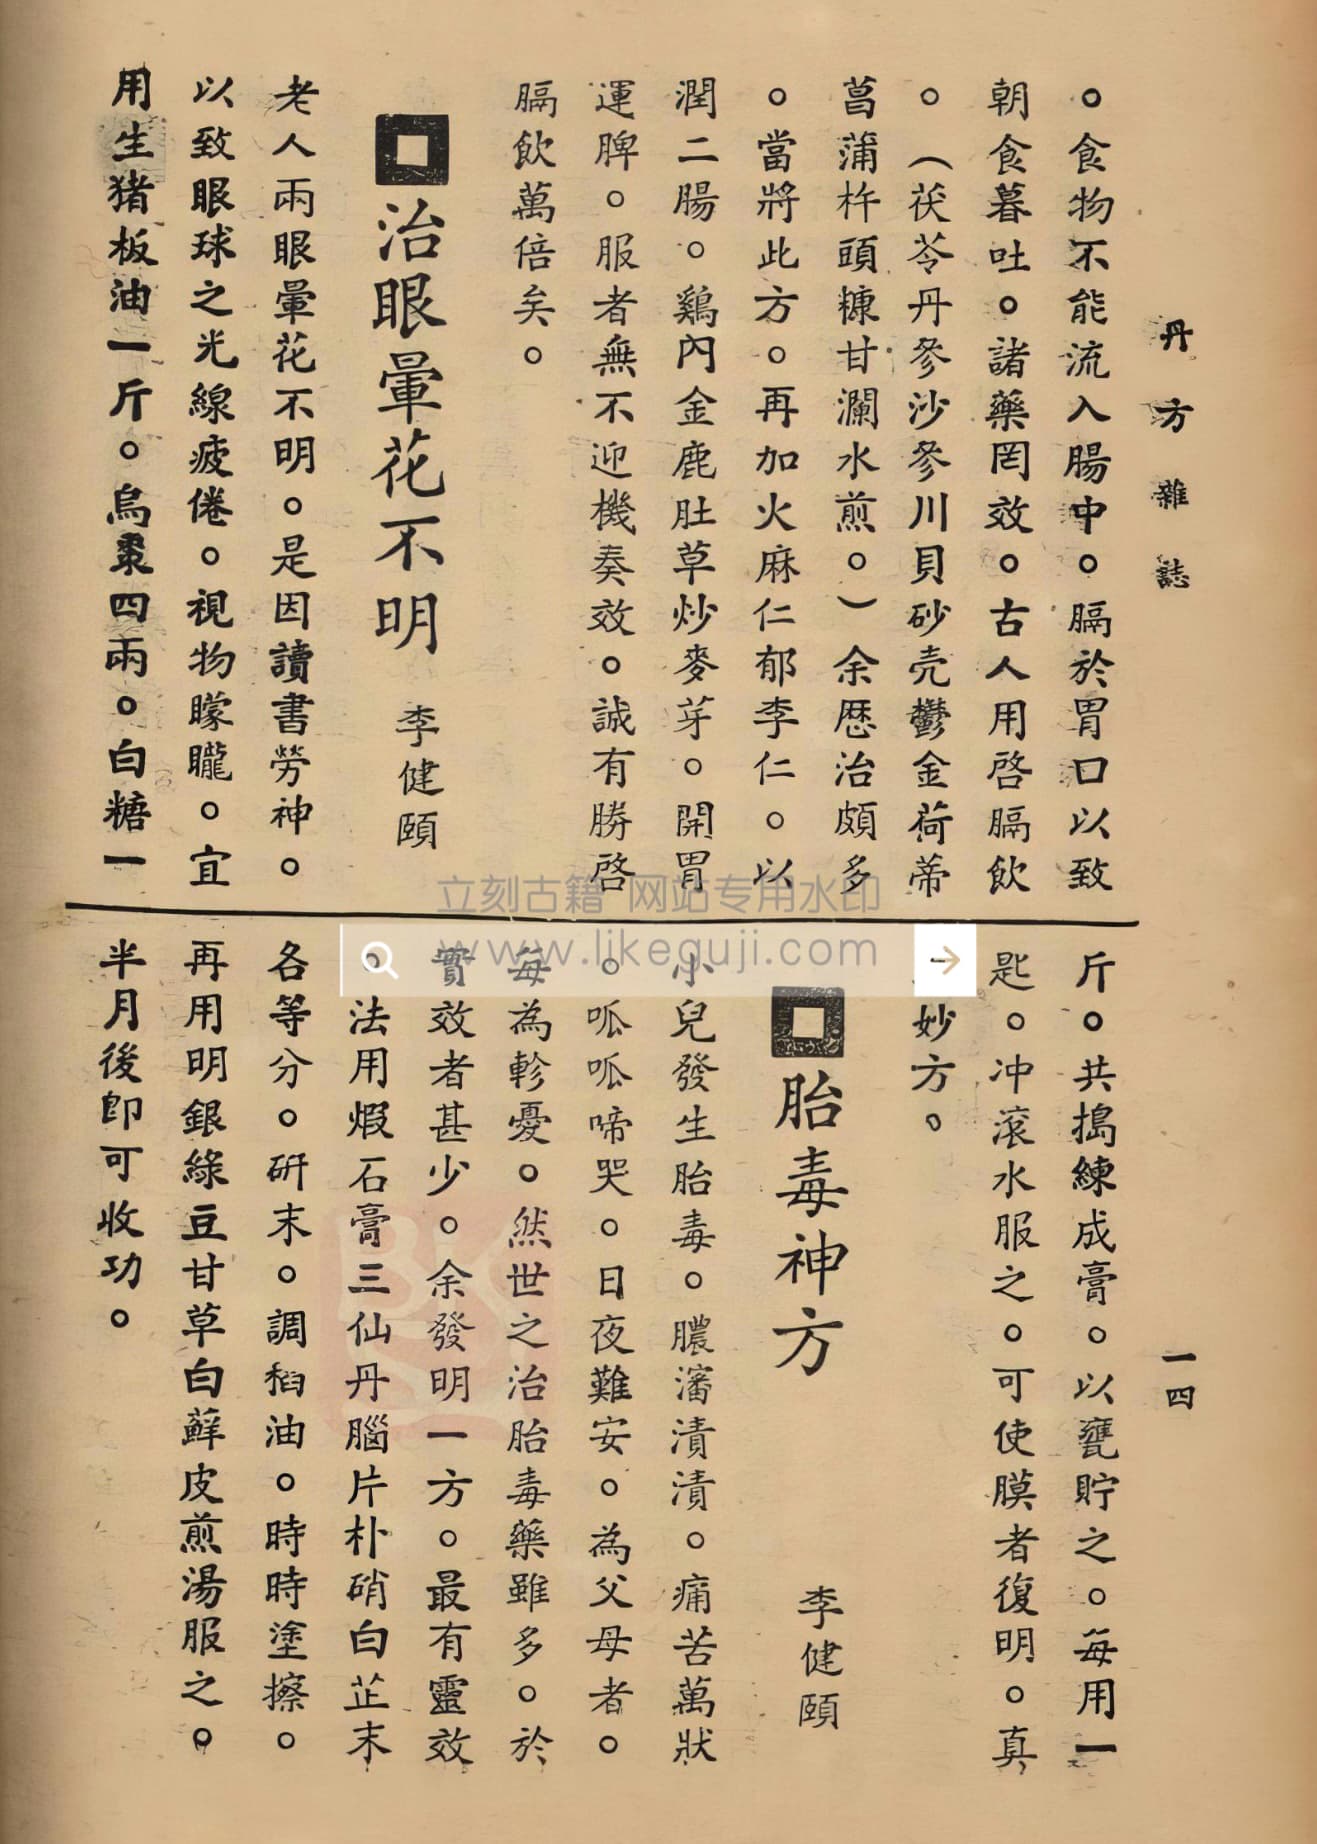 丹方雜誌
一四
。食物不能流入腸中。膈於胃口以致
朝食暮吐。諸藥罔效。古人用啓膈飲
。（茯苓丹參沙參川貝砂壳鬱金荷蒂
菖蒲杵頭糠甘瀾水煎。）余歷治頗多
。當將此方。再加火麻仁郁李仁。以
潤二腸。鷄內金鹿肚草炒麥芽。開胃
運脾。服者無不迎機奏效。誠有勝啓
膈飲萬倍矣。
治眼暈花不明 李健頤
老人兩眼暈花不明。是因讀書勞神。
以致眼球之光線疲倦。視物矇矓。宜
用生猪板油一斤。烏棗四兩。白糖一
斤。共搗練成膏。以甕貯之。每用一
匙。冲滾水服之。可使膜者復明。真
一妙方。
胎毒神方 李健頤
小兒發生胎毒。膿瀋漬漬。痛苦萬狀
。呱呱啼哭。日夜難安。為父母者。
每為軫憂。然世之治胎毒藥雖多。於
實效者甚少。余發明一方。最有靈效
。法用煆石膏三仙丹腦片朴硝白芷末
各等分。研末。調桕油。時時塗擦。
再用明銀綠豆甘草白蘚皮煎湯服之。
半月後即可收功。
立刻古籍 网站专用水印
www.likeguji.com